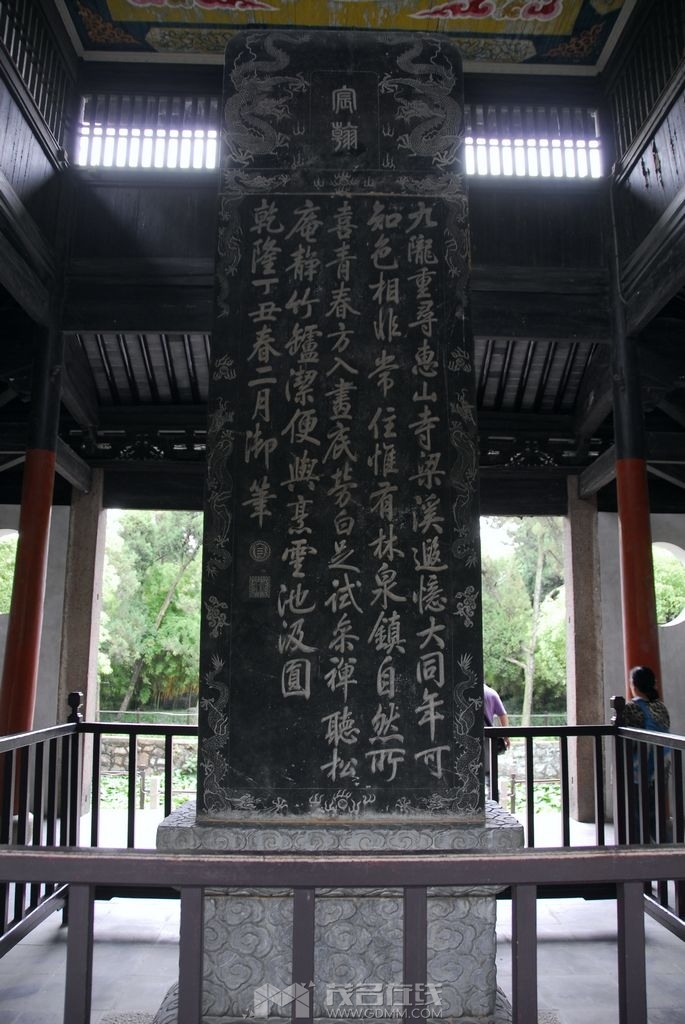 宸翰
九隴重尋惠山寺梁溪遐憶大同年可
知色相非常住惟有林泉鎮自然所
喜青春方入畫底勞白足試參禪聽松
庵靜竹罏潔便與烹雲池汲圓
乾隆丁丑春二月御筆
茂名在线
WWW.GDMM.COM